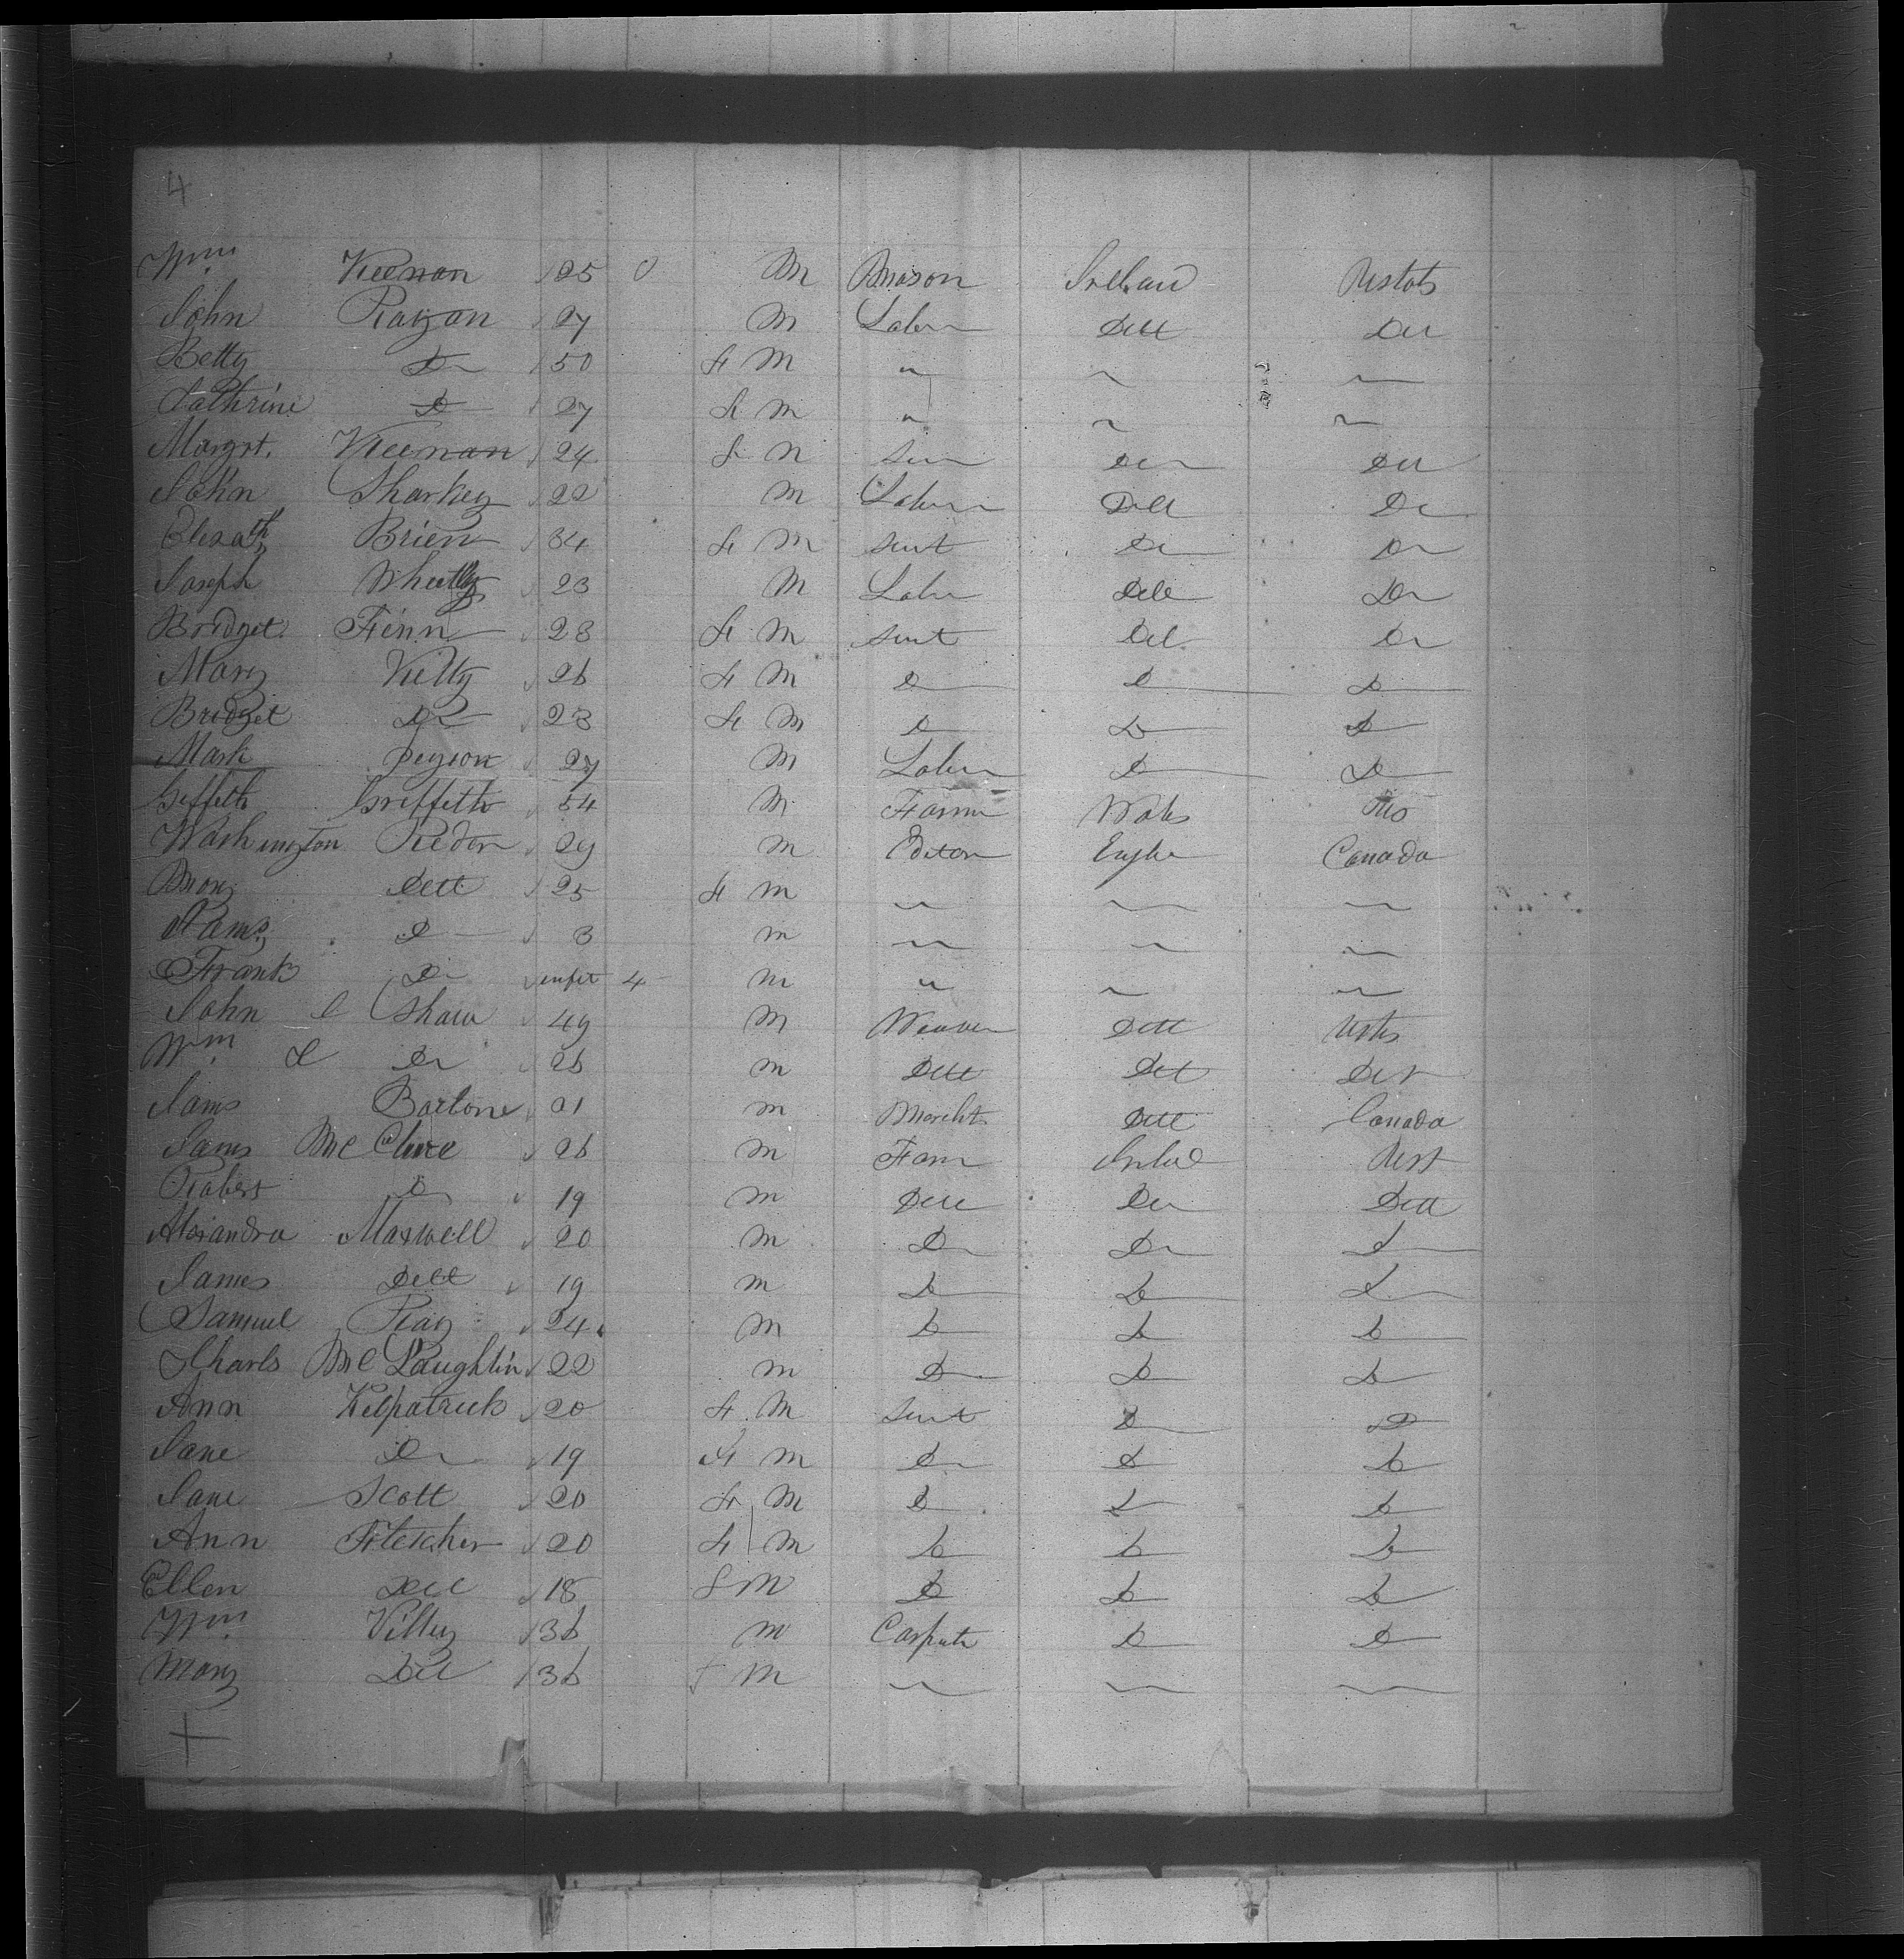 4
Wm. Keenan 25 0 M Mason Ireland Ustats
John Rayan 27 M Labur Ditt Do
Betty Do 50 F M " ~ ~
Cathrine Do 27 F M " ~ ~
Margrt. Keenan 24 F M Do Do
John Sharkey 22 M Labur Ditt Do
Elezath Brien 34 F M Sevt Do Do
Joseph Wheetly 23 M Labur Ditt Do
Bridget Finn 28 F M Sevt Dit Do
Mary Kelty 26 F M D D D
Bridget Do 23 F M D D D
Mark 27 M Labur D D
Griffeth Griffeth 54 M Farmr Wales Us
Washington 29 M Editor Engla Canada
Mary Ditt 25 F M ~ ~ ~
James D 3 M ~ ~ ~
Frank Do infet 4 M " ~ ~
John C Shaw 49 M Weaver Ditt Usts
Wm. L Do 26 M Ditt Dit Dit
Jams Barlone 21 M Mercht Ditt Canada
Jams McClure 26 M Farm Irlad Ust
Robert D 19 M Ditt Do Ditt
Alexandra Maxwell 20 M Do Do D
James Ditt 19 M D D D
Samuel Ray 24 M D D D
Charls McLaughlin 22 M D D D
Ann Kelpatrick 20 F M Sevt D D
Jane Do 19 F M Do D D
Jane Scott 20 F M D D D
Ann Fletcher 20 F M D D D
Ellen Ditt 18 F M D D D
Wm. Killey 36 M Carpntr D D
Mary Ditt 36 F M ~ ~ ~
+